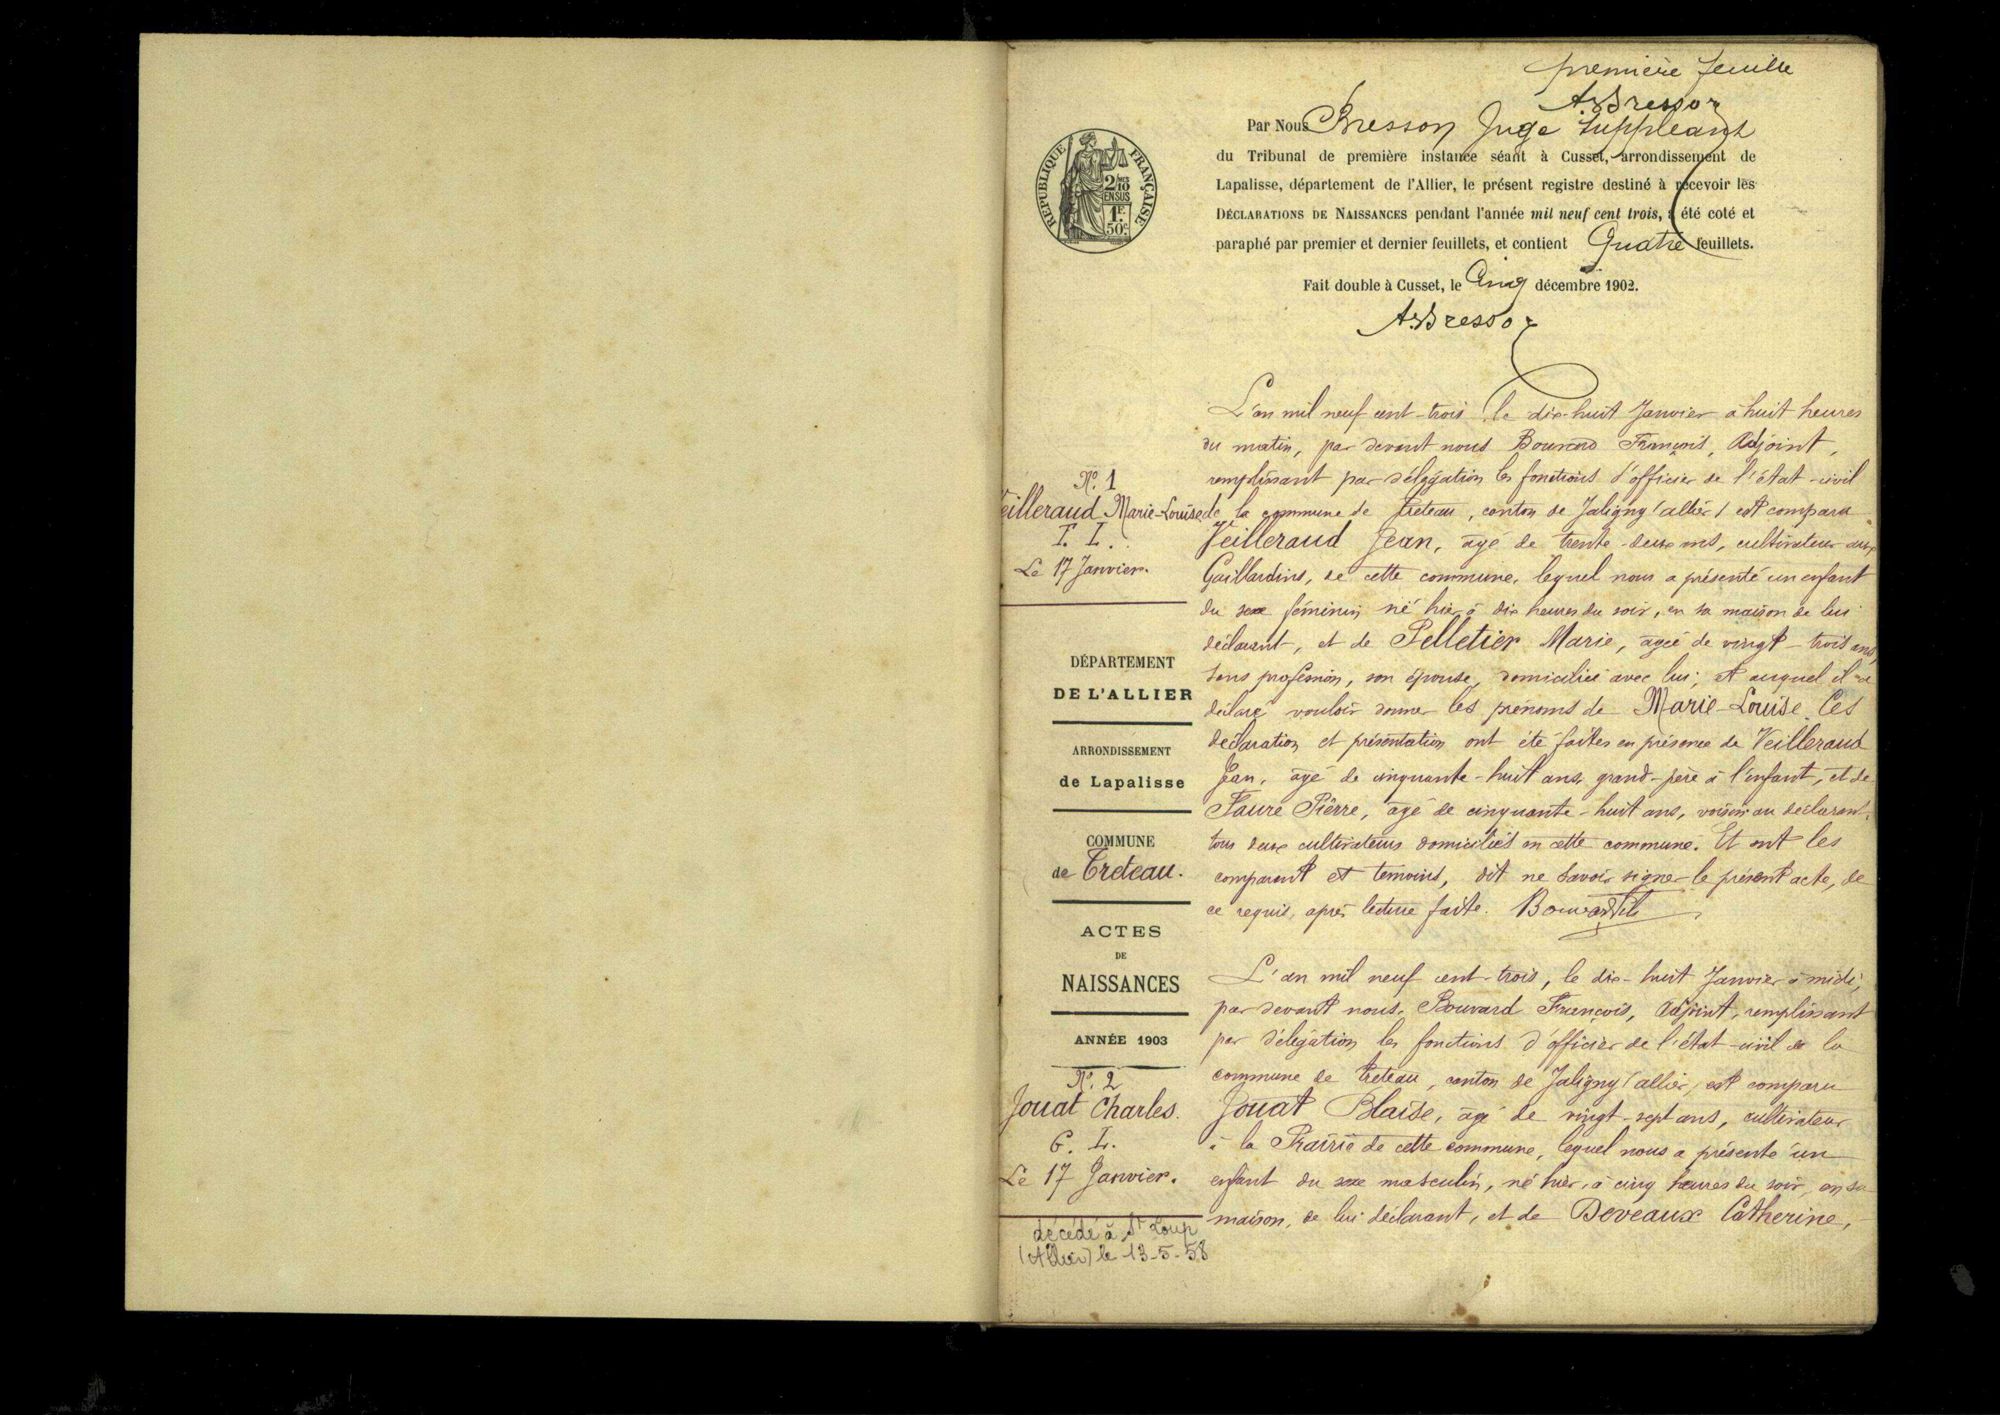 première feuille
A. Bresson
Par Nous Bresson Juge Suppléant
du Tribunal de première instance séant à Cusset, arrondissement de
Lapalisse, département de l'Allier, le présent registre destiné à recevoir les
DÉCLARATIONS DE NAISSANCES pendant l'année mil neuf cent trois, a été coté et
paraphé par premier et dernier feuillets, et contient Quatre feuillets.
Fait double à Cusset, le Cinq décembre 1902.
A. Bresson
RÉPUBLIQUE FRANÇAISE
2/10
EN SUS
1F.
50c.
N°. 1
Veilleraud Marie-Louise
Le 17 Janvier.
DÉPARTEMENT
DE L'ALLIER
ARRONDISSEMENT
de Lapalisse
COMMUNE
de Treteau.
ACTES
DE
NAISSANCES
ANNÉE 1903
N°. 2
Jouat Charles.
Le 17 Janvier.
décédé à St Loup
(Allier) le 13-5-58
L'an mil neuf cent-trois le dix-huit Janvier à huit heures
du matin, par devant nous Bouvard François, Adjoint,
remplissant par délégation les fonctions d'officier de l'état-civil
de la commune de Treteau, canton de Jaligny (allier) est comparu
Veilleraud Jean, âgé de trente-deux ans, cultivateur aux
Gaillardins, de cette commune, lequel nous a présenté un enfant
du sexe féminin, né hier à dix heures du soir, en sa maison de lui
déclarant, et de Pelletier Marie, agée de vingt-trois ans,
sans profession, son épouse, domiciliée avec lui; et auquel il a
déclaré vouloir donner les prénoms de Marie-Louise. Ces
déclaration et présentation ont été faites en présence de Veilleraud
Jean, âgé de cinquante-huit ans, grand-père à l'enfant, et de
Faure Pierre, âgé de cinquante-huit ans, voisin au déclarant,
tous deux cultivateurs domiciliés en cette commune. Et ont les
comparant et témoins, dit ne savoir signer le présent acte, de
ce requis, après lecture faite. Bouvard
L'an mil neuf cent-trois, le dix-huit Janvier à midi,
par devant nous, Bouvard François, Adjoint, remplissant
par délégation les fonctions d'officier de l'état-civil de la
commune de Treteau, canton de Jaligny (allier) est comparu
Jouat Blaise, âgé de vingt-sept ans, cultivateur
à la Prairie de cette commune, lequel nous a présenté un
enfant du sexe masculin, né hier, à cinq heures du soir, en sa
maison, de lui déclarant, et de Deveaux Catherine,